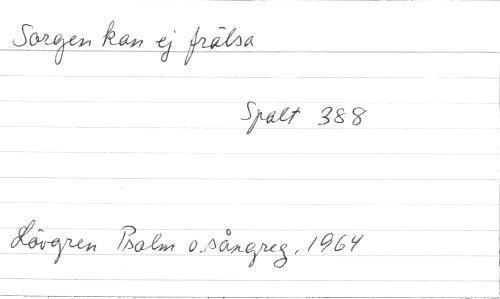 Sorgen kan ej frälsa
Spalt 388
Lövgren Psalm o. sångreg. 1964